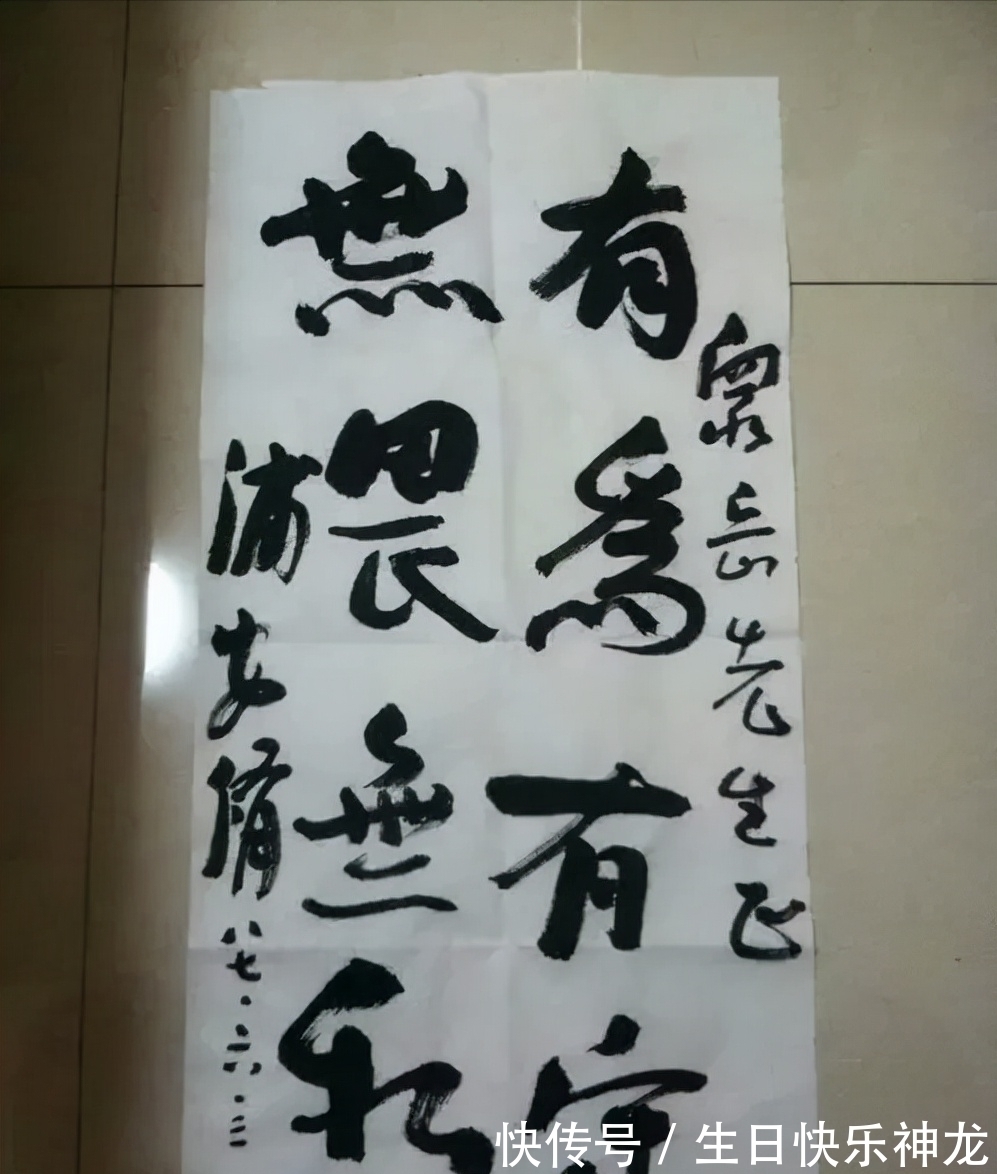 岳先生正
有爲有守
無畏無私
浦安脩
八七·六·三
快传号/生日快乐神龙